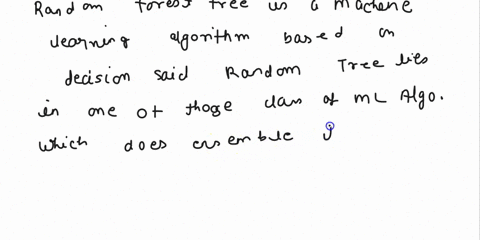 Random forest tree is a machene
learning algorithm based on
decision said Random Tree lies
in one of those class of ML Algo.
which does ensemble